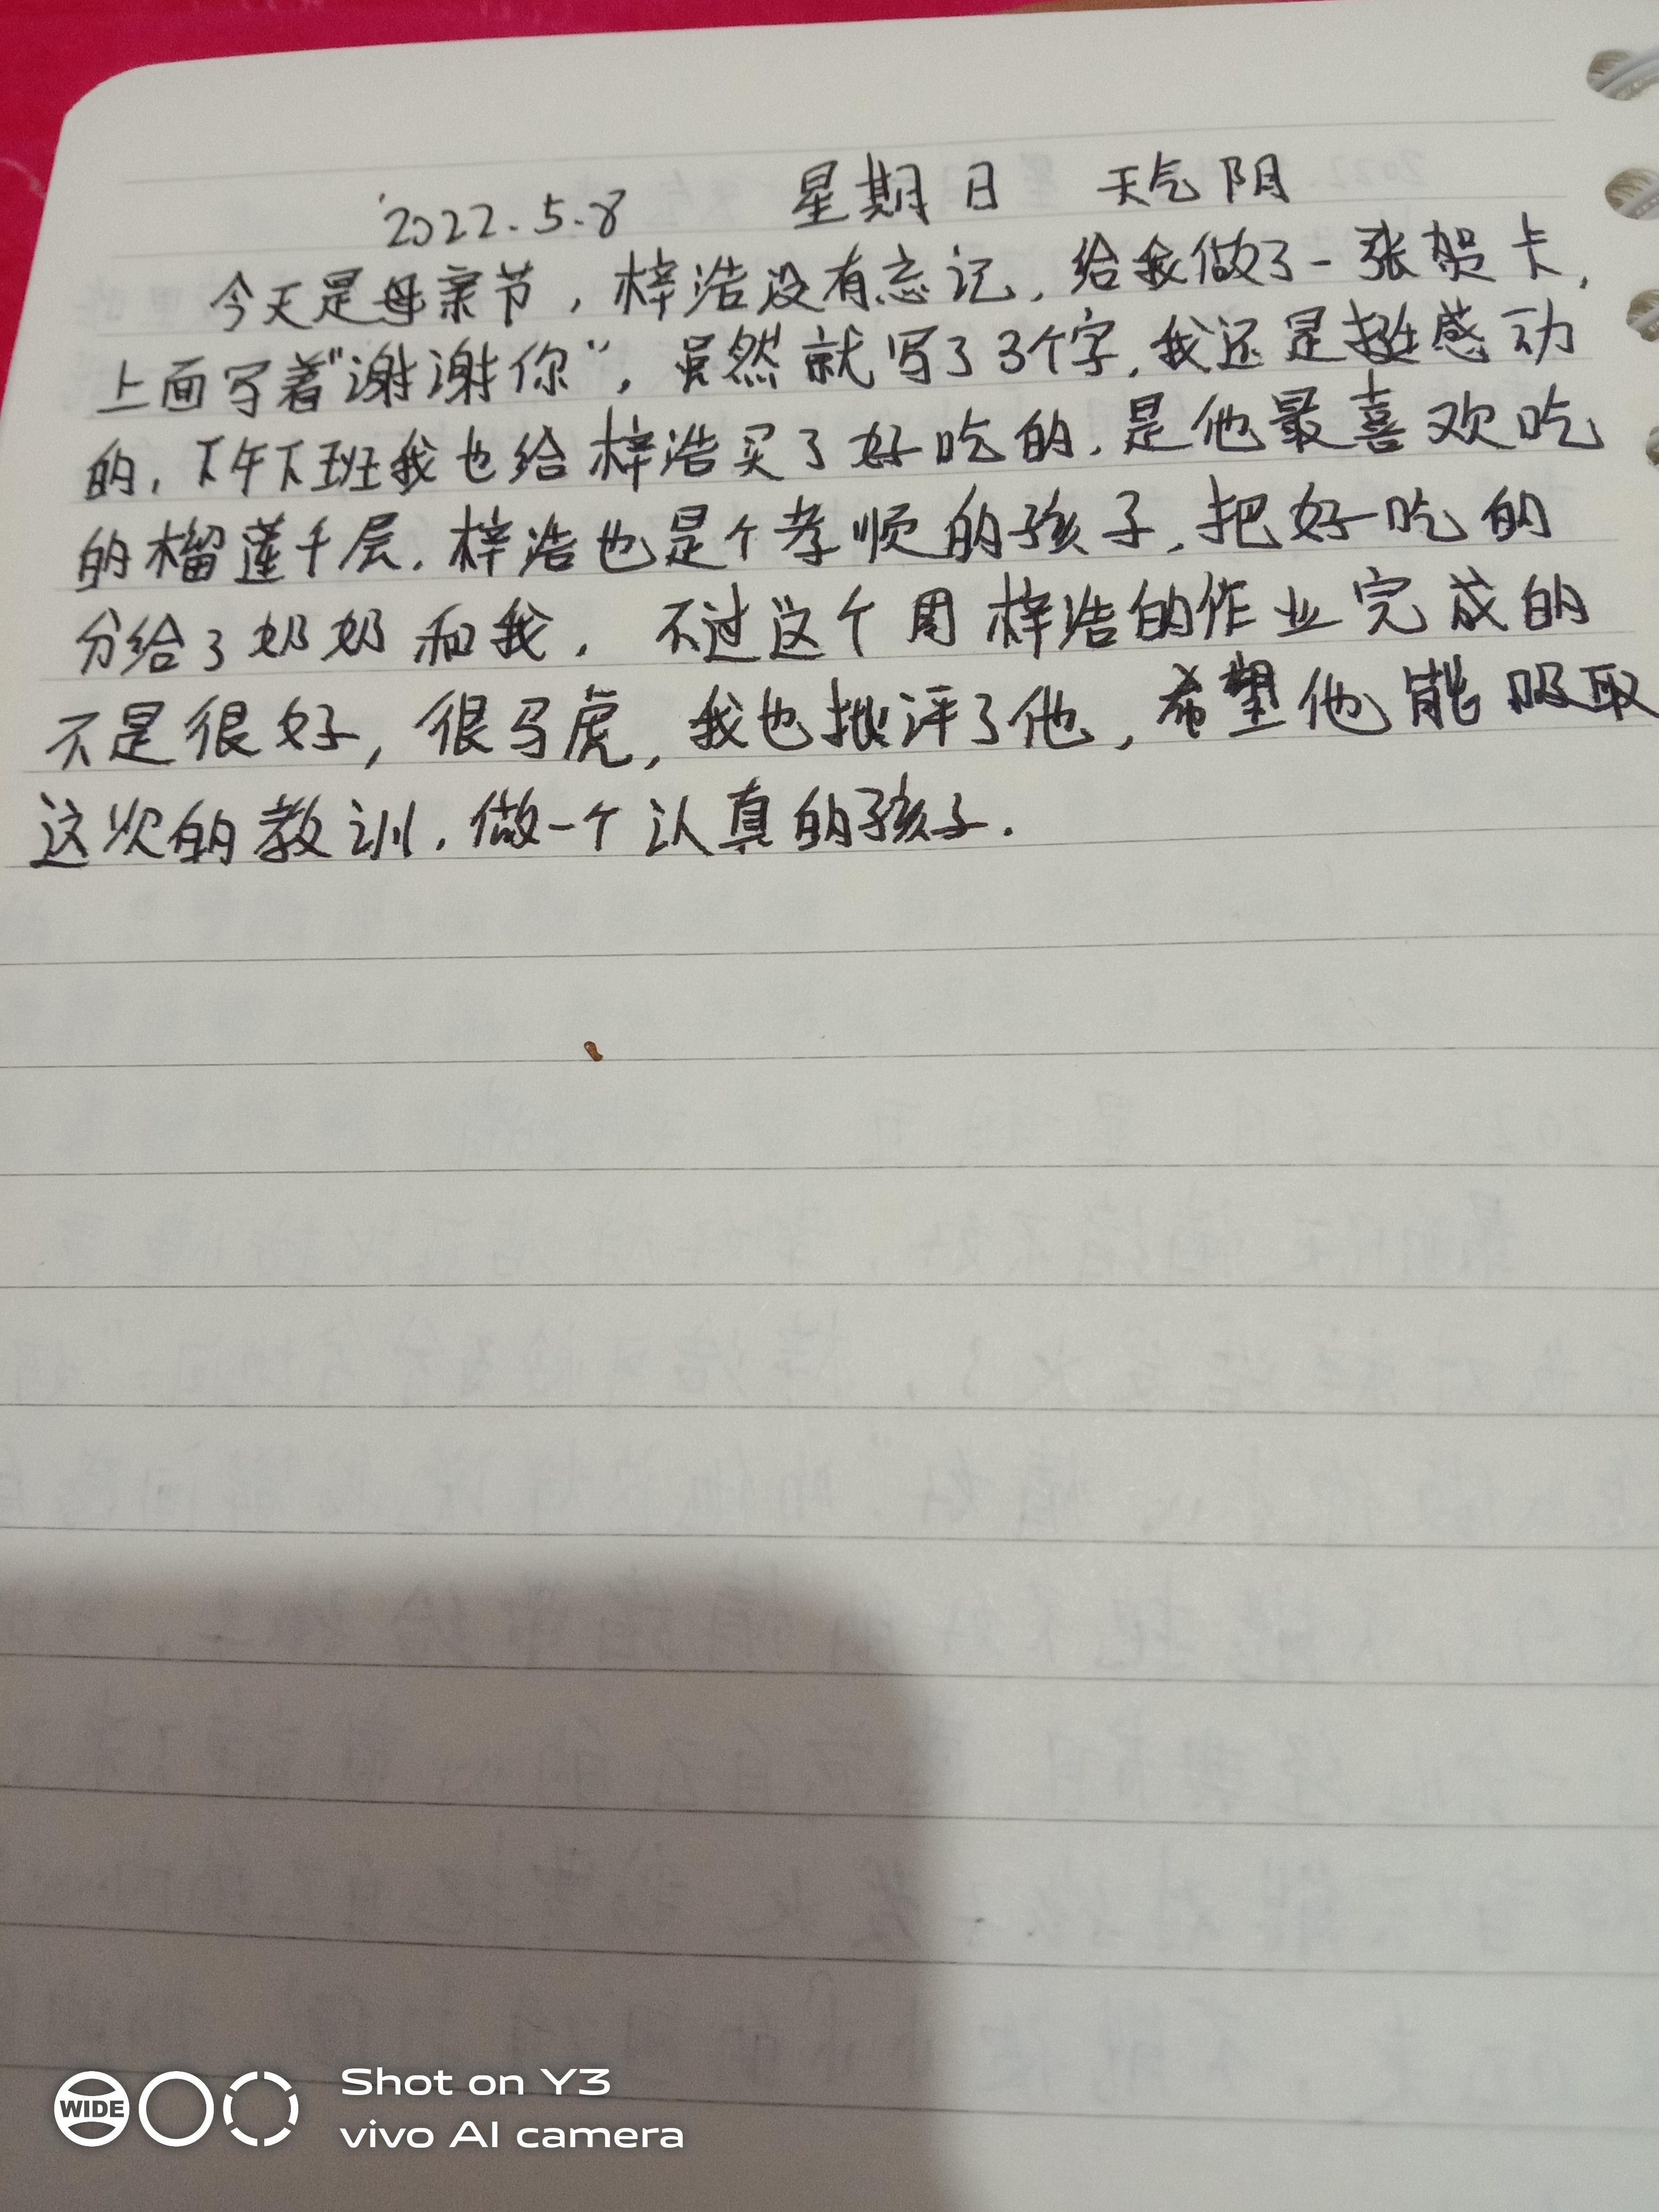 2022.5.8 星期日 天气阴
今天是母亲节,梓浩没有忘记,给我做了一张贺卡,
上面写着“谢谢你”,虽然就写了3个字,我还是挺感动
的,下午下班我也给梓浩买了好吃的,是他最喜欢吃
的榴莲千层.梓浩也是个孝顺的孩子,把好吃的
分给了奶奶和我. 不过这个周梓浩的作业完成的
不是很好,很马虎,我也批评了他,希望他能吸取
这次的教训.做一个认真的孩子.
WIDE
Shot on Y3
vivo AI camera